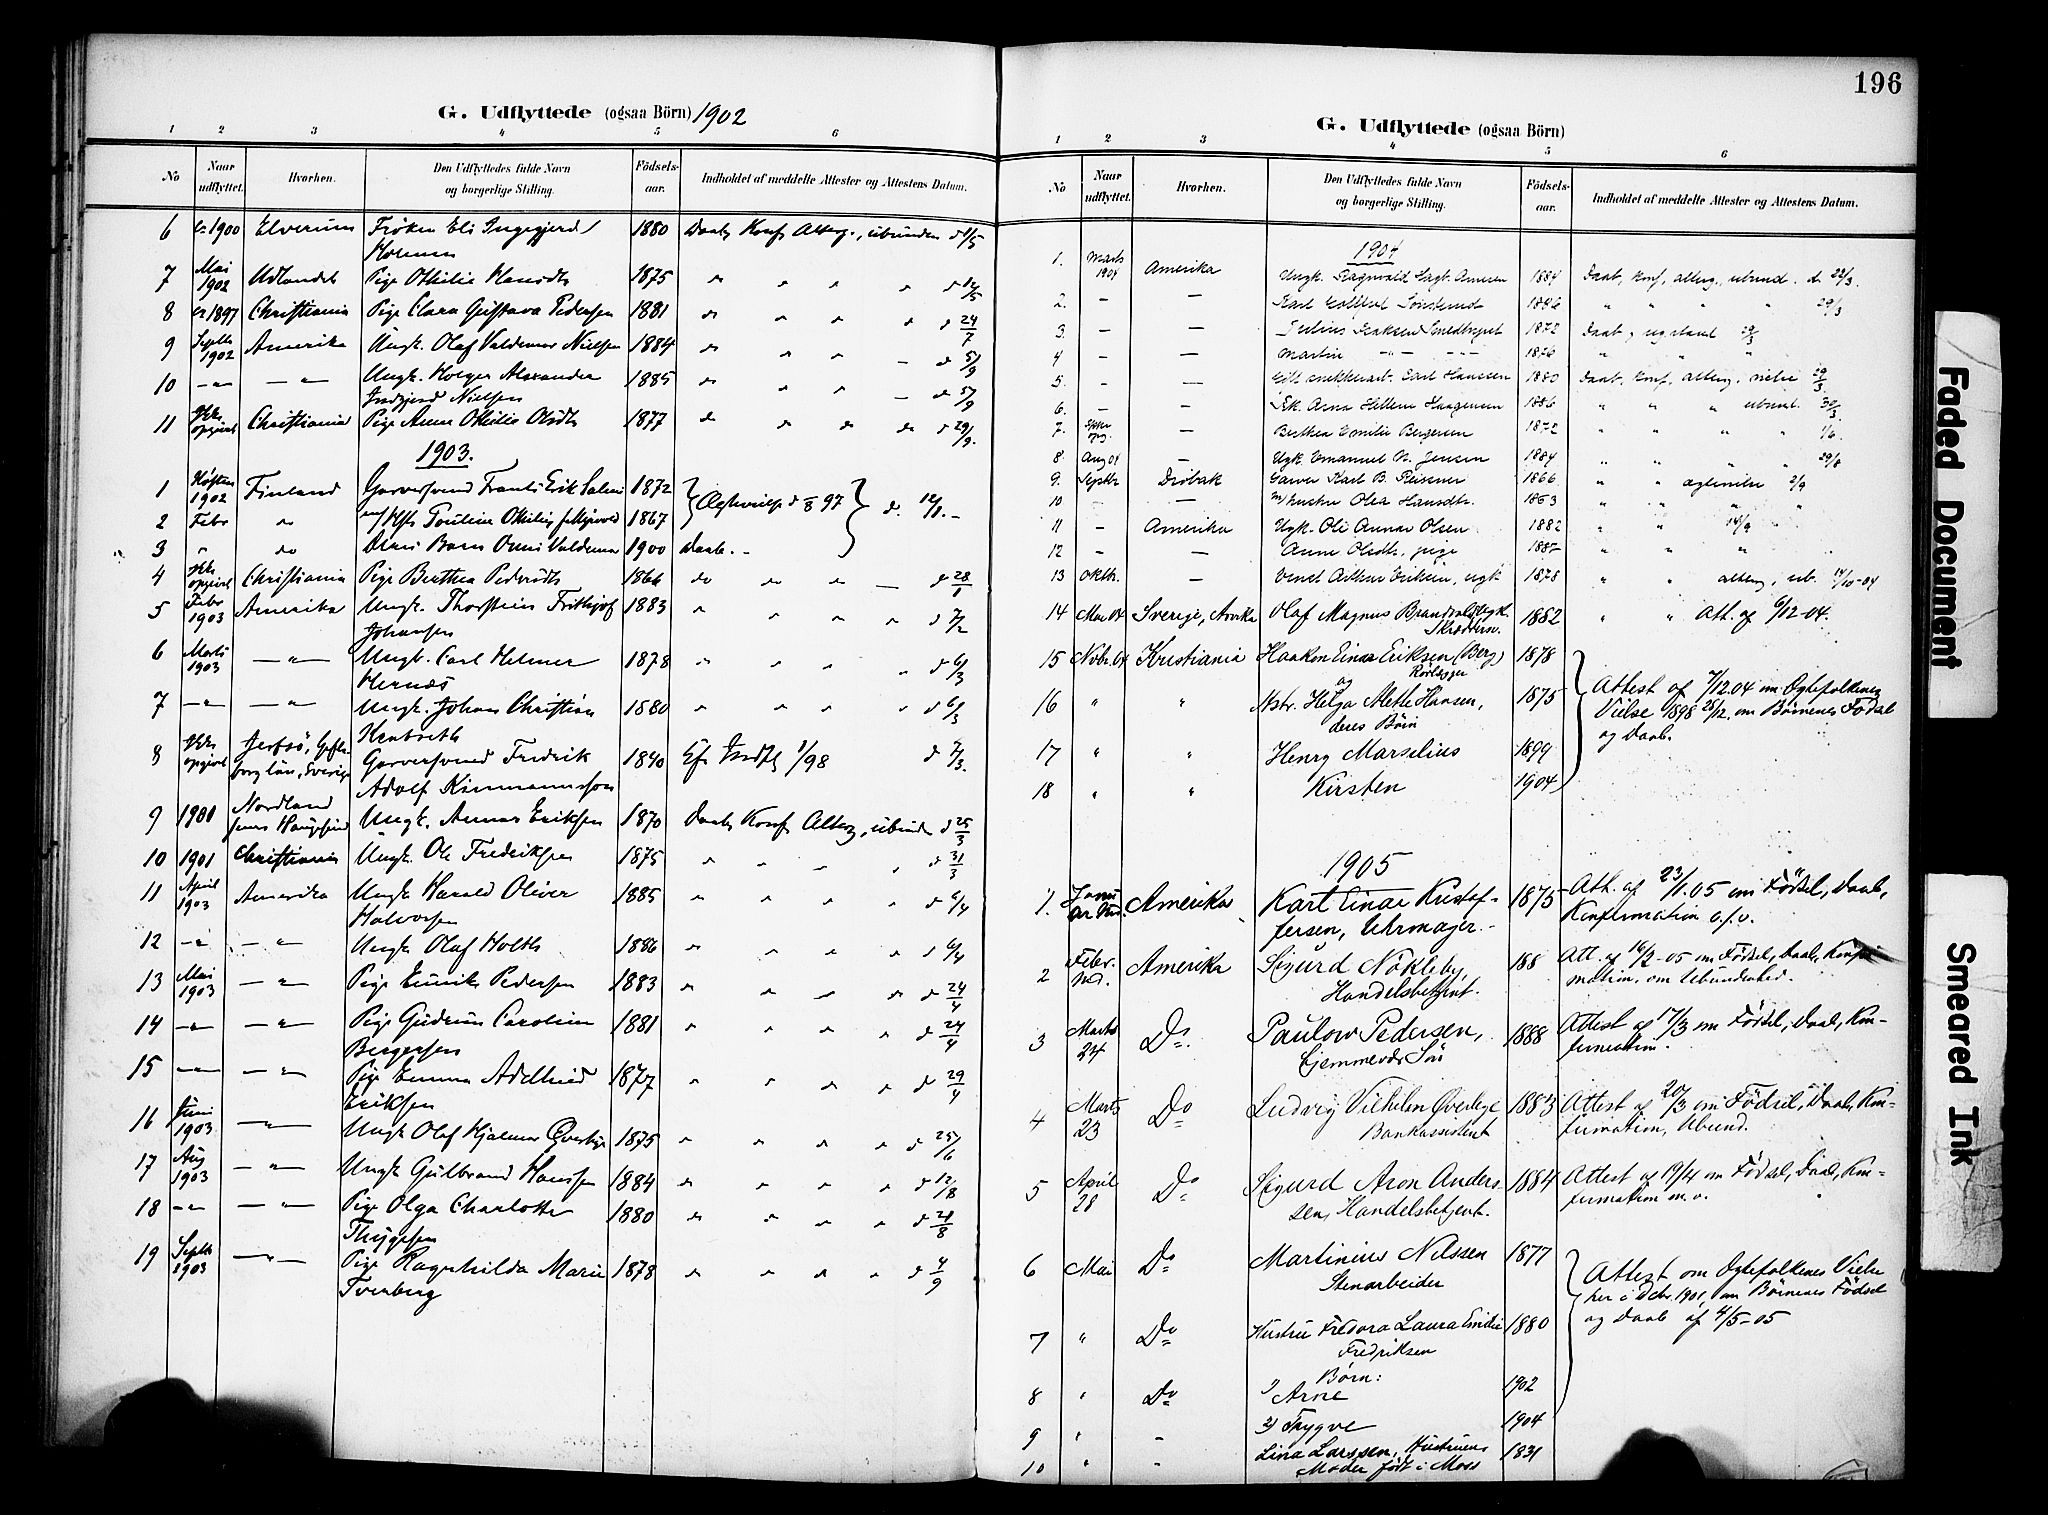 G. Udflyttede (ogsaa Börn) 1902
1 2 3 4 5 6
No Naar udflyttet. Hvorhen. Den Udflyttedes fulde Navn og borgerlige Stilling. Födsels-aar. Indholdet af meddelte Attester og Attestens Datum.
6 1900 Elverum Frøken Eli Ingegjerd 1880 Daab, Konf. Alterg., ubunden d 1/5
Holmen
7 Mai 1902 Udlandet Pige Othilie Hansdtr 1875 " " " " d 12/5
8 1897 Christiania Pige Clara Gustava Pedersen 1881 " " " " d 24/7
9 Septbr 1902 Amerika Ungk. Olaf Valdemar Nielsen 1884 " " " — d 5/9
10 —"— —"— Ungk. Holger Alexander 1885 " " " — d 5/9
Nielsen
11 Ikke opgivet Christiania Pige Anna Othilie Olsdtr 1877 " " " " d 29/9
1903.
1 Høsten 1902 Finland Garversvend Frants Erik 1872 97 d. 12/1. —
2 Febr " Pouline Othilie 1867
3 " do Deres Barn Valdemar 1900 Daab. —
4 Ikke opgivet Christiania Pige Berthea Pedersdtr 1866 do " " — d 28/1
5 Febr 1903 Amerika Ungk. Thorstein Frithjof 1883 " " " " d 7/2
Johansen
6 Marts 1903 —"— Ungk. Carl Helmer 1878 " " " " d 6/3
Hernæs
7 —"— —"— Ungk. Johan Christian 1880 " " " " d 6/3
8 Ikke opgivet Sverige Garversvend Fredrik 1840 Ef. Indfl 1/98 d 7/3.
Adolf
9 1901 Nordland Ungk. Annar Eriksen 1870 Daab, Konf Alterg, ubunden d 25/3
10 1901 Christiania Ungk. Ole Fredriksen 1875 " " " " d 31/3
11 April 1903 Amerika Ungk Harald Oliver 1885 " " " " d 6/4
Halvorsen
12 —"— —"— Ungk Olaf Holth 1886 " " " " d 6/4
13 Mai 1903 —"— Pige Pedersen 1883 " " " " d 24/4
14 —"— —"— Pige Gudrun Caroline 1881 " " " " d 24/4
Bergersen
15 —"— —"— Pige Emma Adelheid 1877 " " " " d 29/4
Eriksen
16 Juni 1903 —"— Ungk Olaf Hjalmar Øverbye 1875 " " " " d 25/6
17 Aug 1903 —"— Ungk Gulbrand Hansen 1884 " " " " d 12/8
18 —"— —"— Pige Olga Charlotte 1880 " " " " d 21/8
Thygesen
19 Septb 1903 —"— Pige Ragnhilda Marie 1878 " " " " d 4/9
Tverberg
196
G. Udflyttede (ogsaa Börn)
1 2 3 4 5 6
No Naar udflyttet. Hvorhen. Den Udflyttedes fulde Navn og borgerlige Stilling. Födsels-aar. Indholdet af meddelte Attester og Attestens Datum.
1904
1. Marts 1904 Amerika Ungk. Ragnvald Arnesen 1884 Daab, konf, alterg, ubund. d. 22/3.
2. — — Karl 1886 " " " " 29/3
3. — — Julius Isaksen 1872 Daab, ugstand
4 — — Martin —"— —"— 1876 " " "
5. — — Carl Hanssen 1880 Daab, konf, alterg, vielse 29/3
6. — — Frk. Anna Hellene Haagensen 1886 " " " ubund. 30/3
7. — Berthea Emilie Bergersen 1872 " " " " 1/6
8 Aug 04 — Ugk. Emanuel N. Jensen 1884 " " " " 29/8
9. Septbr Drøbak Garver Karl B. Reissner 1866 " " vielse 2/9
10 — — m/ hustru Olea Hansdtr. 1863 " " " "
11 — Amerika Ugk. Ole Annar Olsen 1882 " " 14/9 "
12 — — Anne Olsdtr, pige 1887 " " " "
13 Oktbr. — Arthur Eriksen, ugk 1878 " " alterg, ub. 14/10-04
14 Mai 04 Sverige, Arvika Olaf Magnus Ungk. 1882 " " Att. af 6/12-04.
Skræddersv.
15 Nobr. 04 Kristiania Haakon Einar Eriksen (Berg) 1878
Rørlægger
16 " " og Hstr. Helga Alethe Hansen, 1875 Attest af 7/12.04 om Ægtefolkenes
deres Børn Vielse 1898 28/12. om Børnenes Fødsel
17 " " Henry Marselius 1899 og Daab.
18 " " Kirsten 1904
1905
1. Januar Amerika Karl Einar Kristof- 1875 Att. af 23/1.05 om Fødsel, Daab,
fersen, Uhrmager. Konfirmation o.s.v.
2 Febr. Amerika Sigurd Nökleby, 188 Att. 16/2-05 om Fødsel, Daab, Konfir
Handelsbetjent. mation, om Ubundenhed.
3 Marts 24 Do. Paulow Pedersen, 1888 Attest af 17/3 om Fødsel, Daab, Kon-
Søn firmation.
4 Marts 23 Do Ludvig Vilhelm Øverbye 1883 Attest af 20/3 om Fødsel, Daab, Kon-
Bankassistent firmation, Ubund.
5 April 28 Do Sigurd Aron Anders- 1884 Attest af 19/4 om Fødsel, Daab, Kon-
sen, Handelsbetjent. firmation m.v.
6 Mai Do Martinius Nilssen 1877
Stenarbeider Attest om Ægtefolkenes Vielse
her i Dcbr. 1901, om Børnenes Fødsel
7 " Do Hustru Fredora Laura Emilie 1880 og Daab af 4/5-05
Fredriksen
Børn:
8 " Do 1) Arne 1902
9 " " 2) Trygve 1904
10 " " Lina Larssen, Hustruens 1831
Moder født i Moss
Faded Document
Smeared Ink